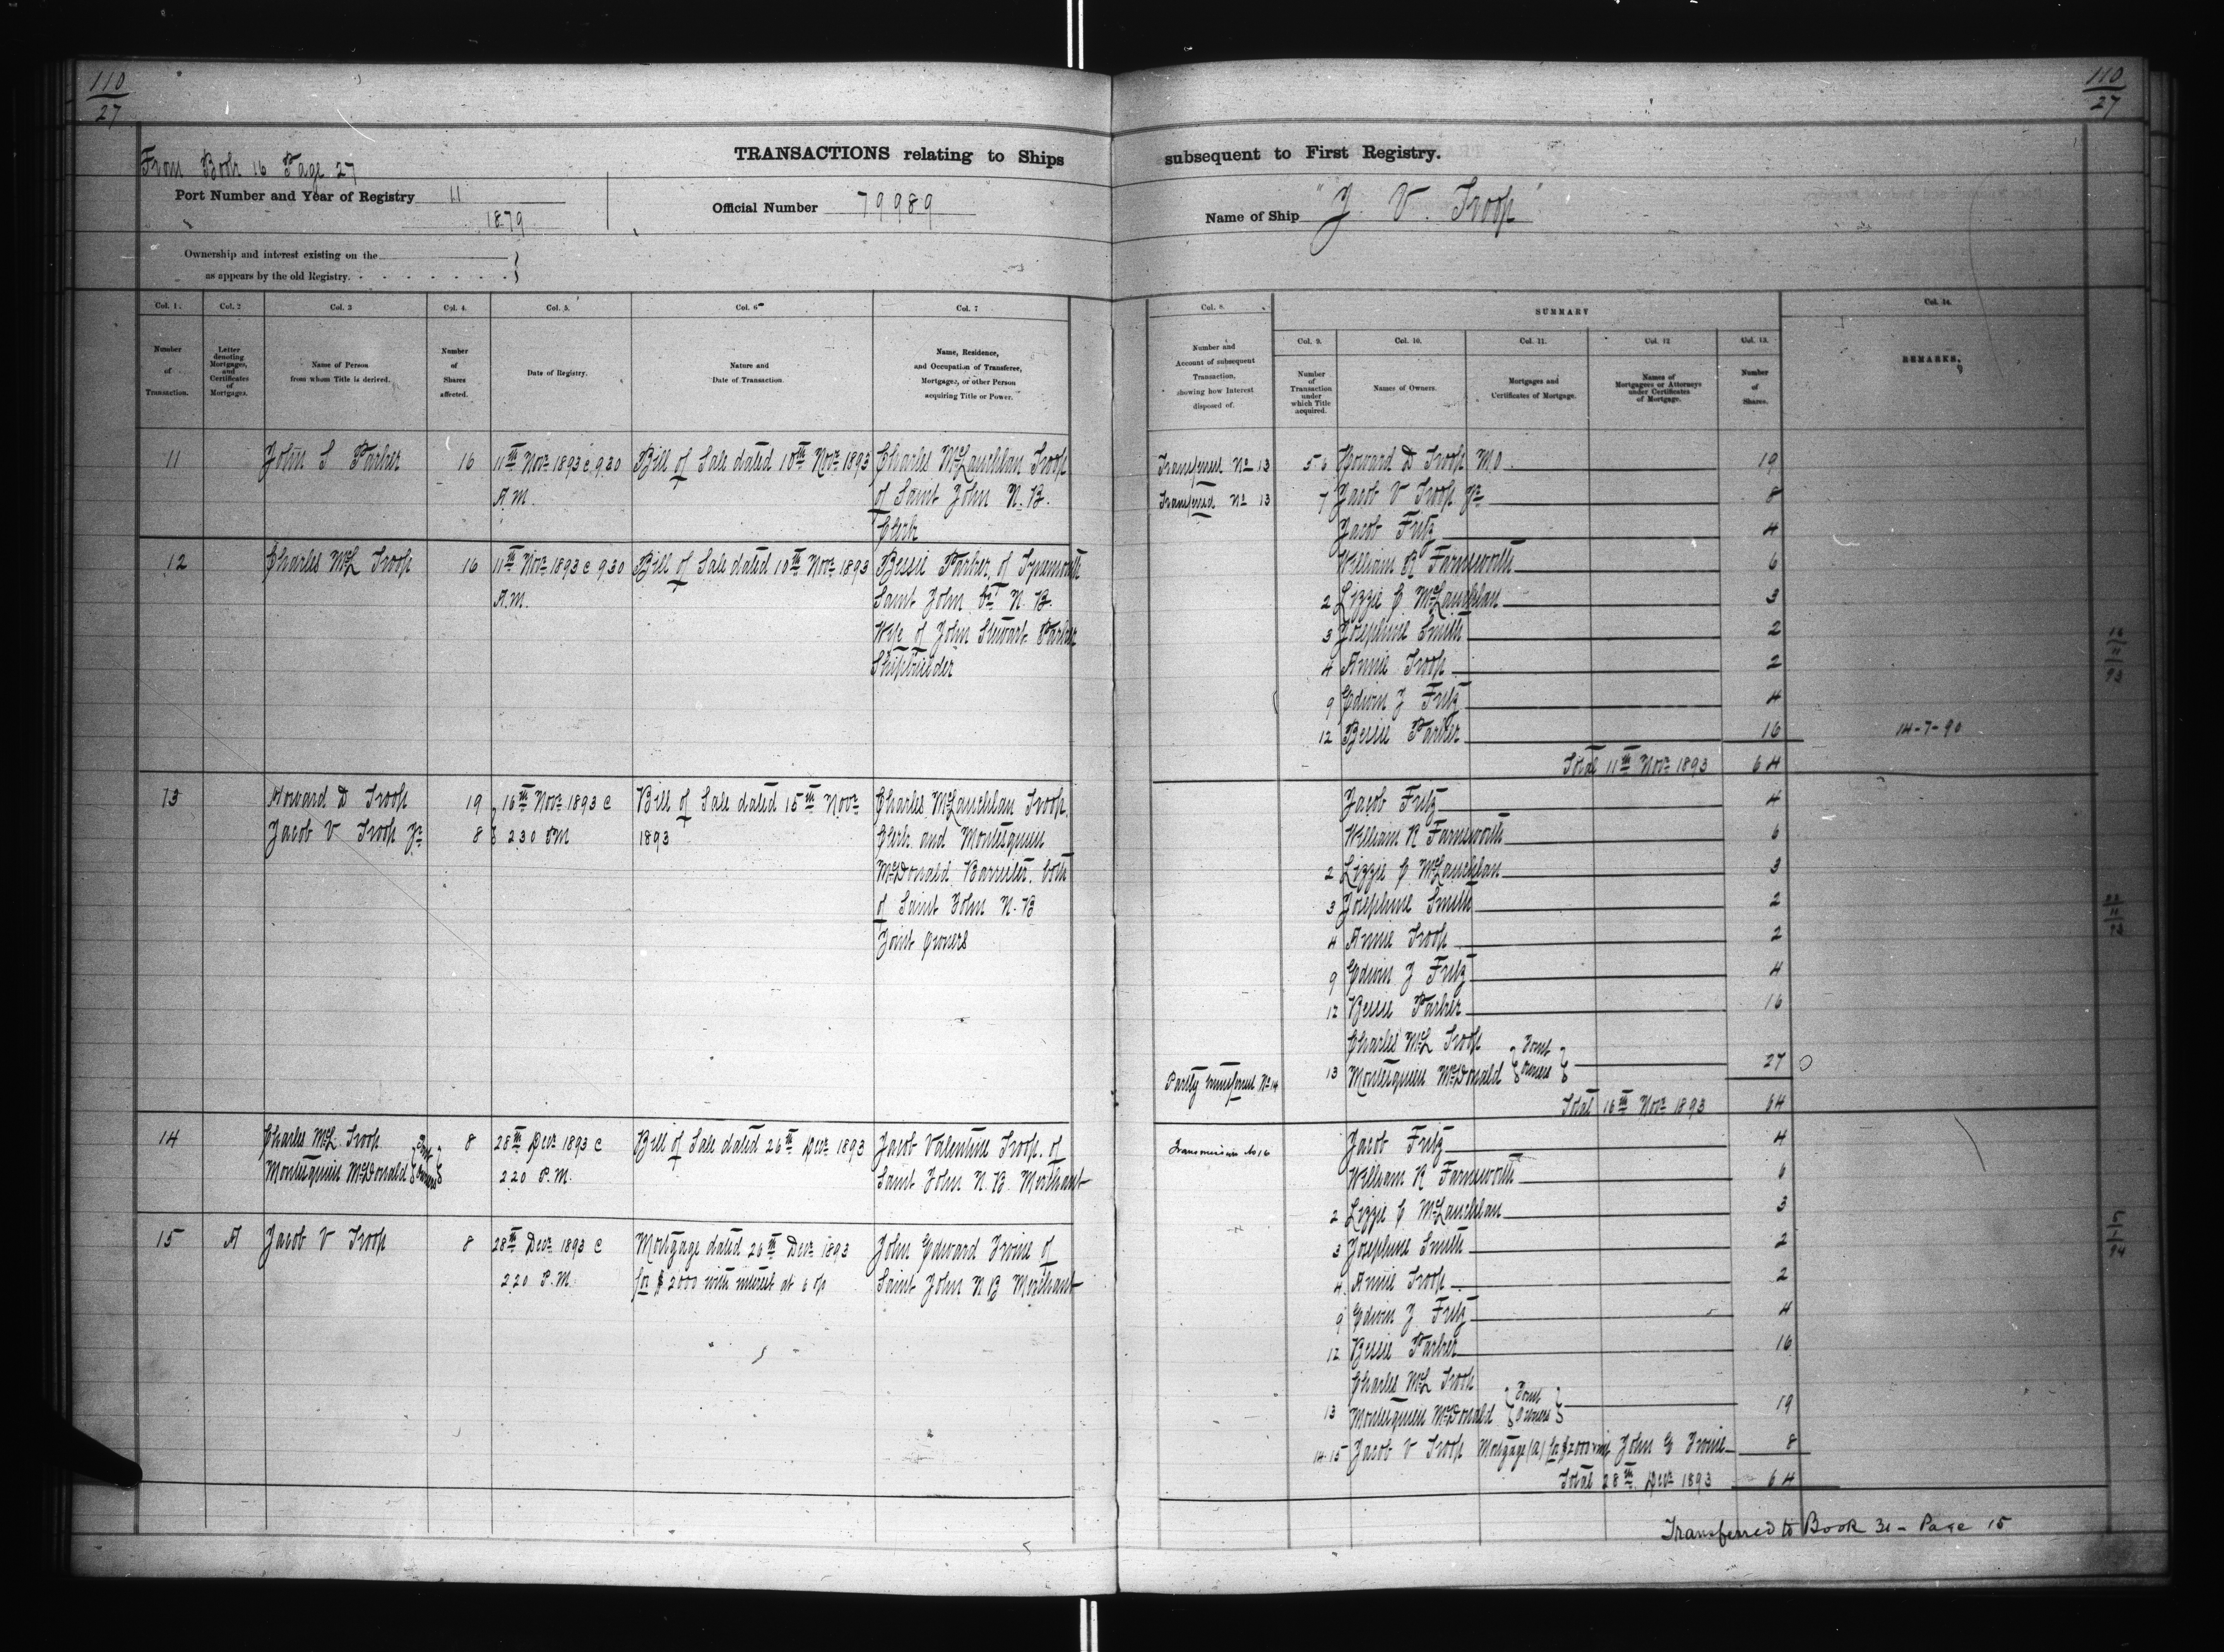 110
27
110
27
From Book 16 Page 27
TRANSACTIONS relating to Ships subsequent to First Registry.
Port Number and Year of Registry 11
1879
Official Number 79989
Name of Ship "J. V. Troop"
Ownership and interest existing on the
as appears by the old Registry.
Col. 1. Col. 2 Col. 3 Col. 4. Col. 5. Col. 6 Col. 7
Number of Transaction.
Letter denoting Mortgages, and Certificates of Mortgages.
Name of Person from whom Title is derived.
Number of Shares affected.
Date of Registry.
Nature and Date of Transaction.
Name, Residence, and Occupation of Transferee, Mortgagee, or other Person acquiring Title or Power.
11 John S Parker 16 11th Novr 1893 @ 9.30 Bill of Sale dated 10th Novr 1893 Charles McLauchlan Troop
A.M. of Saint John N.B.
Clerk
12 Charles McL Troop 16 11th Novr 1893 @ 9 30 Bill of Sale dated 10th Novr 1893 Bessie Parker, of Tynemouth
A.M. Saint John Co N.B.
Wife of John Stewart Parker
Shipbuilder
13 Howard D Troop 19 16th Novr 1893 @ Bill of Sale dated 15th Novr Charles McLauchlan Troop,
Jacob V Troop Jr 8 2 30 PM 1893 Clerk and Montesquieu
McDonald Barrister, both
of Saint John N.B
Joint Owners
14 Charles McL. Troop Joint 8 28th Decr 1893 @ Bill of Sale dated 26th Decr 1893 Jacob Valentine Troop. of
Montesquieu McDonald Owners 2 20 P.M. Saint John N.B. Merchant
15 A Jacob V Troop 8 28th Decr 1893 @ Mortgage dated 26th Decr 1893 John Edward Irvine of
2 20 P.M. for $2000 with interest at 6 % Saint John N B Merchant
Col. 8. SUMMARY Col. 14.
Number and Account of subsequent Transaction, showing how Interest disposed of.
Col. 9. Col. 10. Col. 11. Col. 12 Col. 13.
Number of Transaction under which Title acquired.
Names of Owners.
Mortgages and Certificates of Mortgage.
Names of Mortgagees or Attorneys under Certificates of Mortgage.
Number of Shares.
REMARKS.
Transferred No 13 5-6 Howard D Troop M.O. 19
Transferred No 13 7 Jacob V Troop Jr 8
Jacob Fritz 4
William R Farnsworth 6
2 Lizzie C McLauchlan 3
3 Josephine Smith 2
4 Annie Troop 2
9 Edwin J Fritz 4
12 Bessie Parker 16 14-7-90
Total 11th Novr 1893 64
Jacob Fritz 4
William R Farnsworth 6
2 Lizzie C McLauchlan 3
3 Josephine Smith 2
4 Annie Troop 2
9 Edwin J Fritz 4
12 Bessie Parker 16
Charles McL Troop Joint
Partly transferred No 14 13 Montesquieu McDonald Owners 27
Total 16th Novr 1893 64
Transmission No 16 Jacob Fritz 4
William R Farnsworth 6
2 Lizzie C McLauchlan 3
3 Josephine Smith 2
4 Annie Troop 2
9 Edwin J Fritz 4
12 Bessie Parker 16
Charles McL Troop Joint
13 Montesquieu McDonald Owners 19
14.15 Jacob V Troop Mortgage (A) for $2000 John E Irvine 8
Total 28th Decr 1893 64
Transferred to Book 31 - Page 15